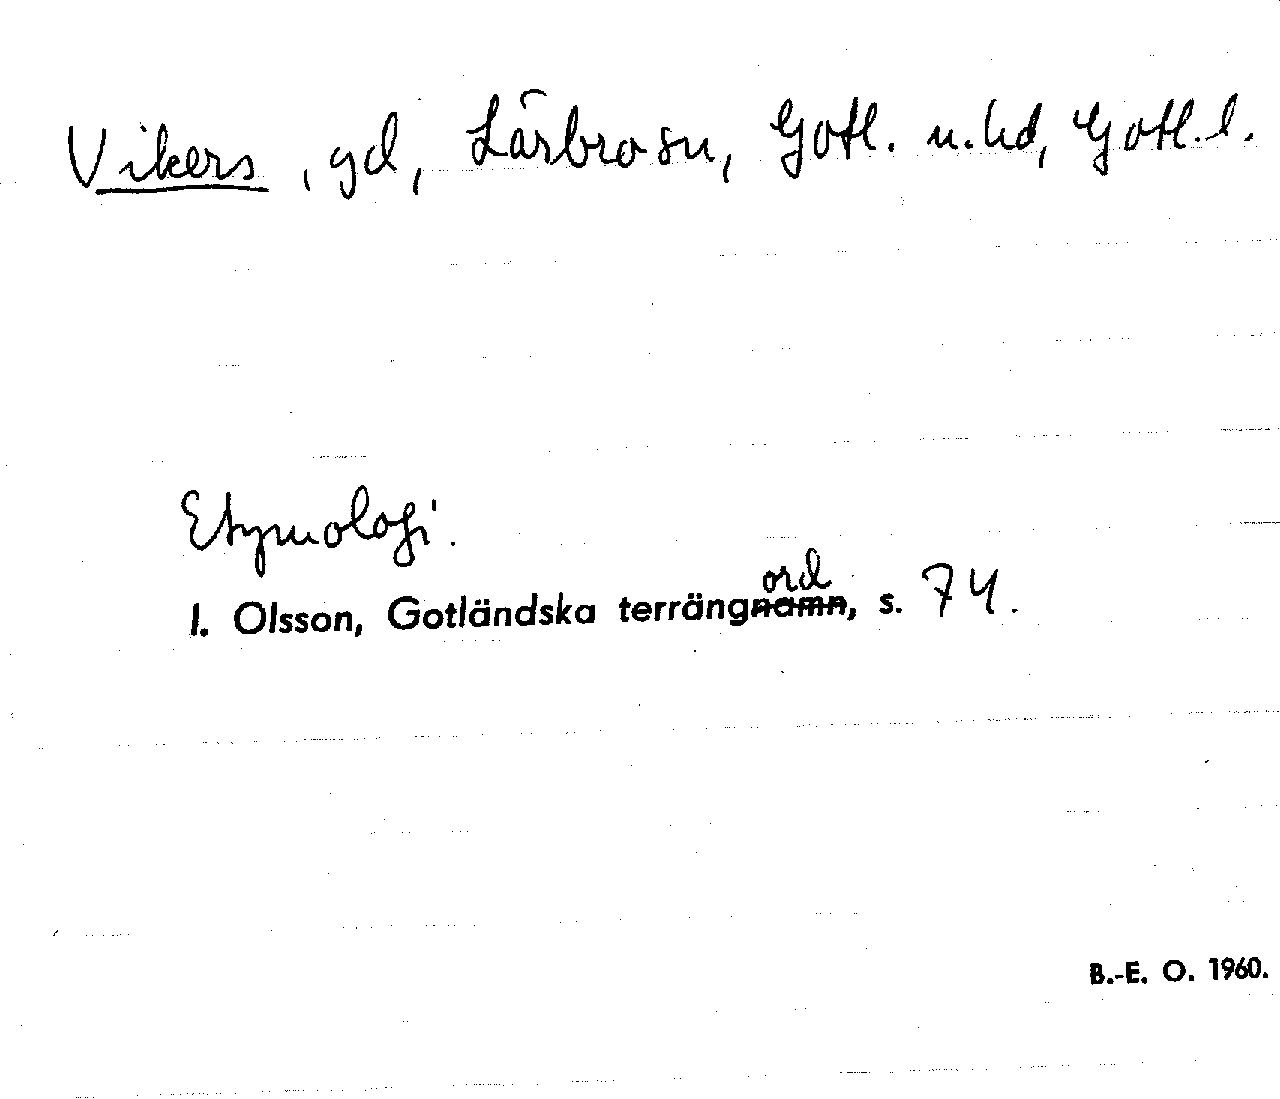 Vikers, gd, Lärbro sn, Gotl. n. hd, Gotl. l.
Etymologi.
ord
I. Olsson, Gotländska terrängnamn, s. 74.
B.-E. O. 1960.